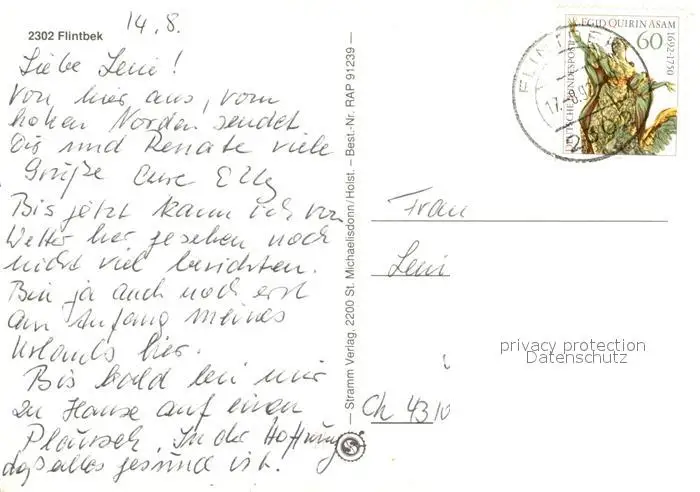 14.8.
2302 Flintbek
Liebe Leni!
Von hier aus, vom
hohen Norden sendet
Dir und Renate viele
Grüße Eure Elly
Bis jetzt kann ich von
Wetter her gesehen noch
nicht viel berichten.
Bin ja auch noch erst
am Anfang meines
Urlaubs hier.
Bis bald bei mir
zu Hause auf einen
Plausch. In der Hoffnung
daß alles gesund ist.
— Stramm Verlag, 2200 St. Michaelisdonn/Holst. – Best.-Nr. RAP 91239 —
EGID QUIRIN ASAM
1692-1750
60
DEUTSCHE BUNDESPOST
FLINTBEK
17.-8.92
Frau
Leni
privacy protection
Datenschutz
Ch 4310